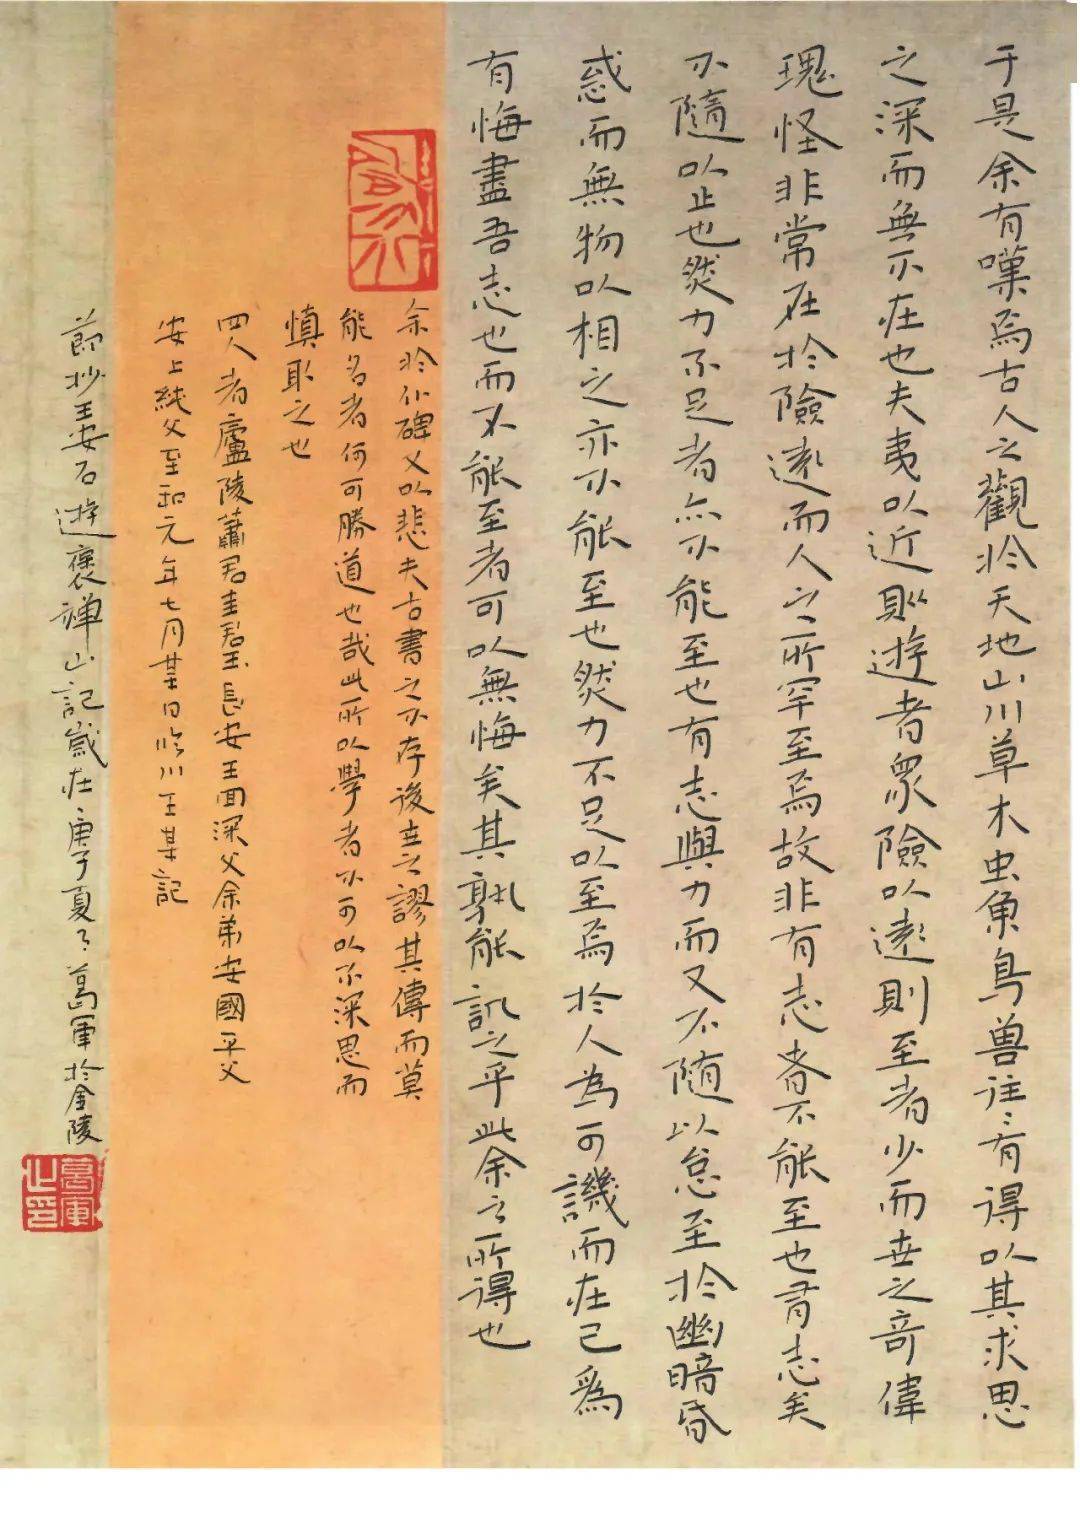 于是余有嘆焉古人之觀於天地山川草木虫魚鳥兽往〻有得以其求思
之深而無不在也夫夷以近則遊者眾險以遠則至者少而世之奇偉
瑰怪非常在於險遠而人之所罕至焉故非有志者不能至也有志矣
不隨以止也然力不足者亦不能至也有志與力而又不随以怠至於幽暗昏
惑而無物以相之亦不能至也然力不足以至焉於人為可譏而在己為
有悔盡吾志也而不能至者可以無悔矣其孰能訊之乎此余之所得也
余於仆碑又以悲夫古書之不存後世之謬其傳而莫
能名者何可勝道也哉此所以學者不可以不深思而
慎取之也
四人者廬陵蕭君圭君玉長安王回深父余弟安國平父
安上純父至和元年七月某日臨川王某記
節抄王安石遊褒禅山記歲在庚子夏〻葛軍於金陵
葛軍之印